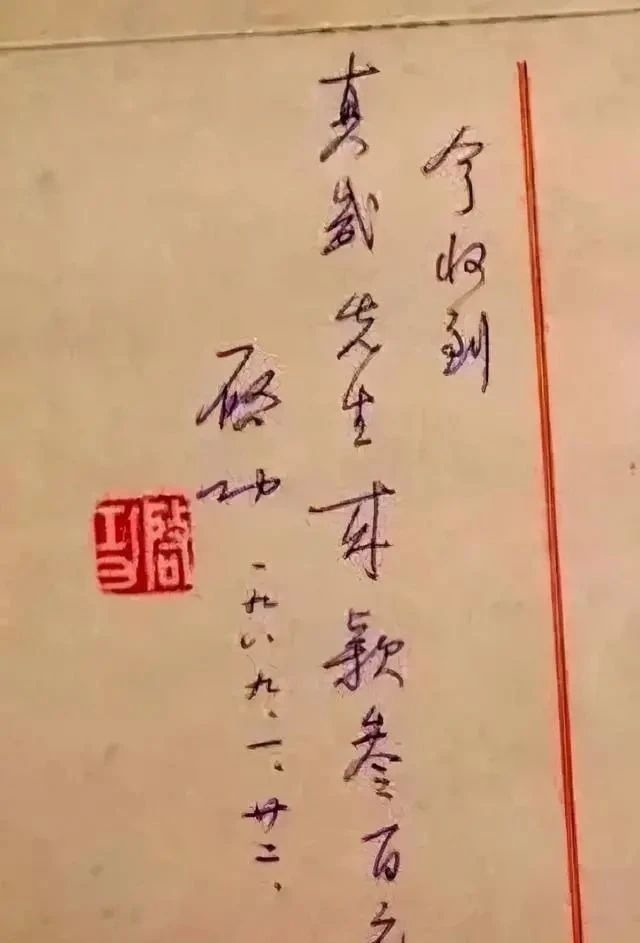 今收到
真先生来款叁百元
啓功
一九八九.一.廿二.
啓功